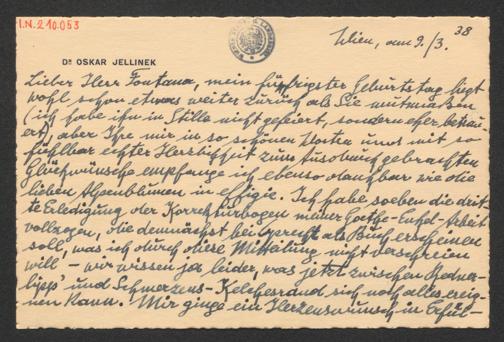 I.N. 210.053
38
Wien, am 9./3.
Dr OSKAR JELLINEK
Lieber Herr Fontana, mein fünfzigster Geburtstag liegt
wohl schon etwas weiter zurück als Sie mutmaßen
(ich habe ihn in Stille nicht gefeiert, sondern eher betrau-
ert), aber Ihre mir in so schönen Worten und mit so
fühlbar echter Herzlichkeit zum Ausdruck gebrachten
Glückwünsche empfange ich ebenso dankbar wie die
lieben Alpenblumen in effigie. Ich habe soeben die drit-
te Erledigung der Korrekturbogen meiner Goethe-Enkel-Arbeit
vollzogen, die demnächst bei als Buch erscheinen
soll, was ich durch diese Mitteilung nicht verschreien
will – wir wissen ja leider, was jetzt zwischen
und Schmerzens-Kelchesrand sich noch alles ereig-
nen kann. Mir ginge ein Herzenswunsch in Erfül-